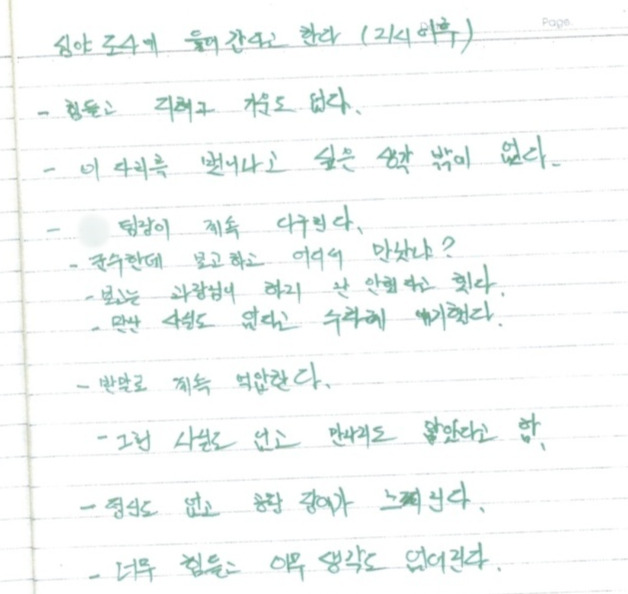 심야 조사에 들어간다고 한다 (21시 이후)
Page.
- 힘들고 지쳐고 기운도 없다.
- 이 자리를 벗어나고 싶은 생각 밖이 없다.
- 팀장이 계속 다구친다.
- 군수한데 보고하고 어디서 만났냐?
- 보고는 과장님이 하지 난 안했다고 했다.
- 만난 사실도 없다고 수차례 얘기했다.
- 반말로 계속 억압한다.
- 그런 사실도 없고 만나지도 않았다고 함.
- 정신도 없고 공탑
- 너무 힘들고 아무 생각도 없어진다.